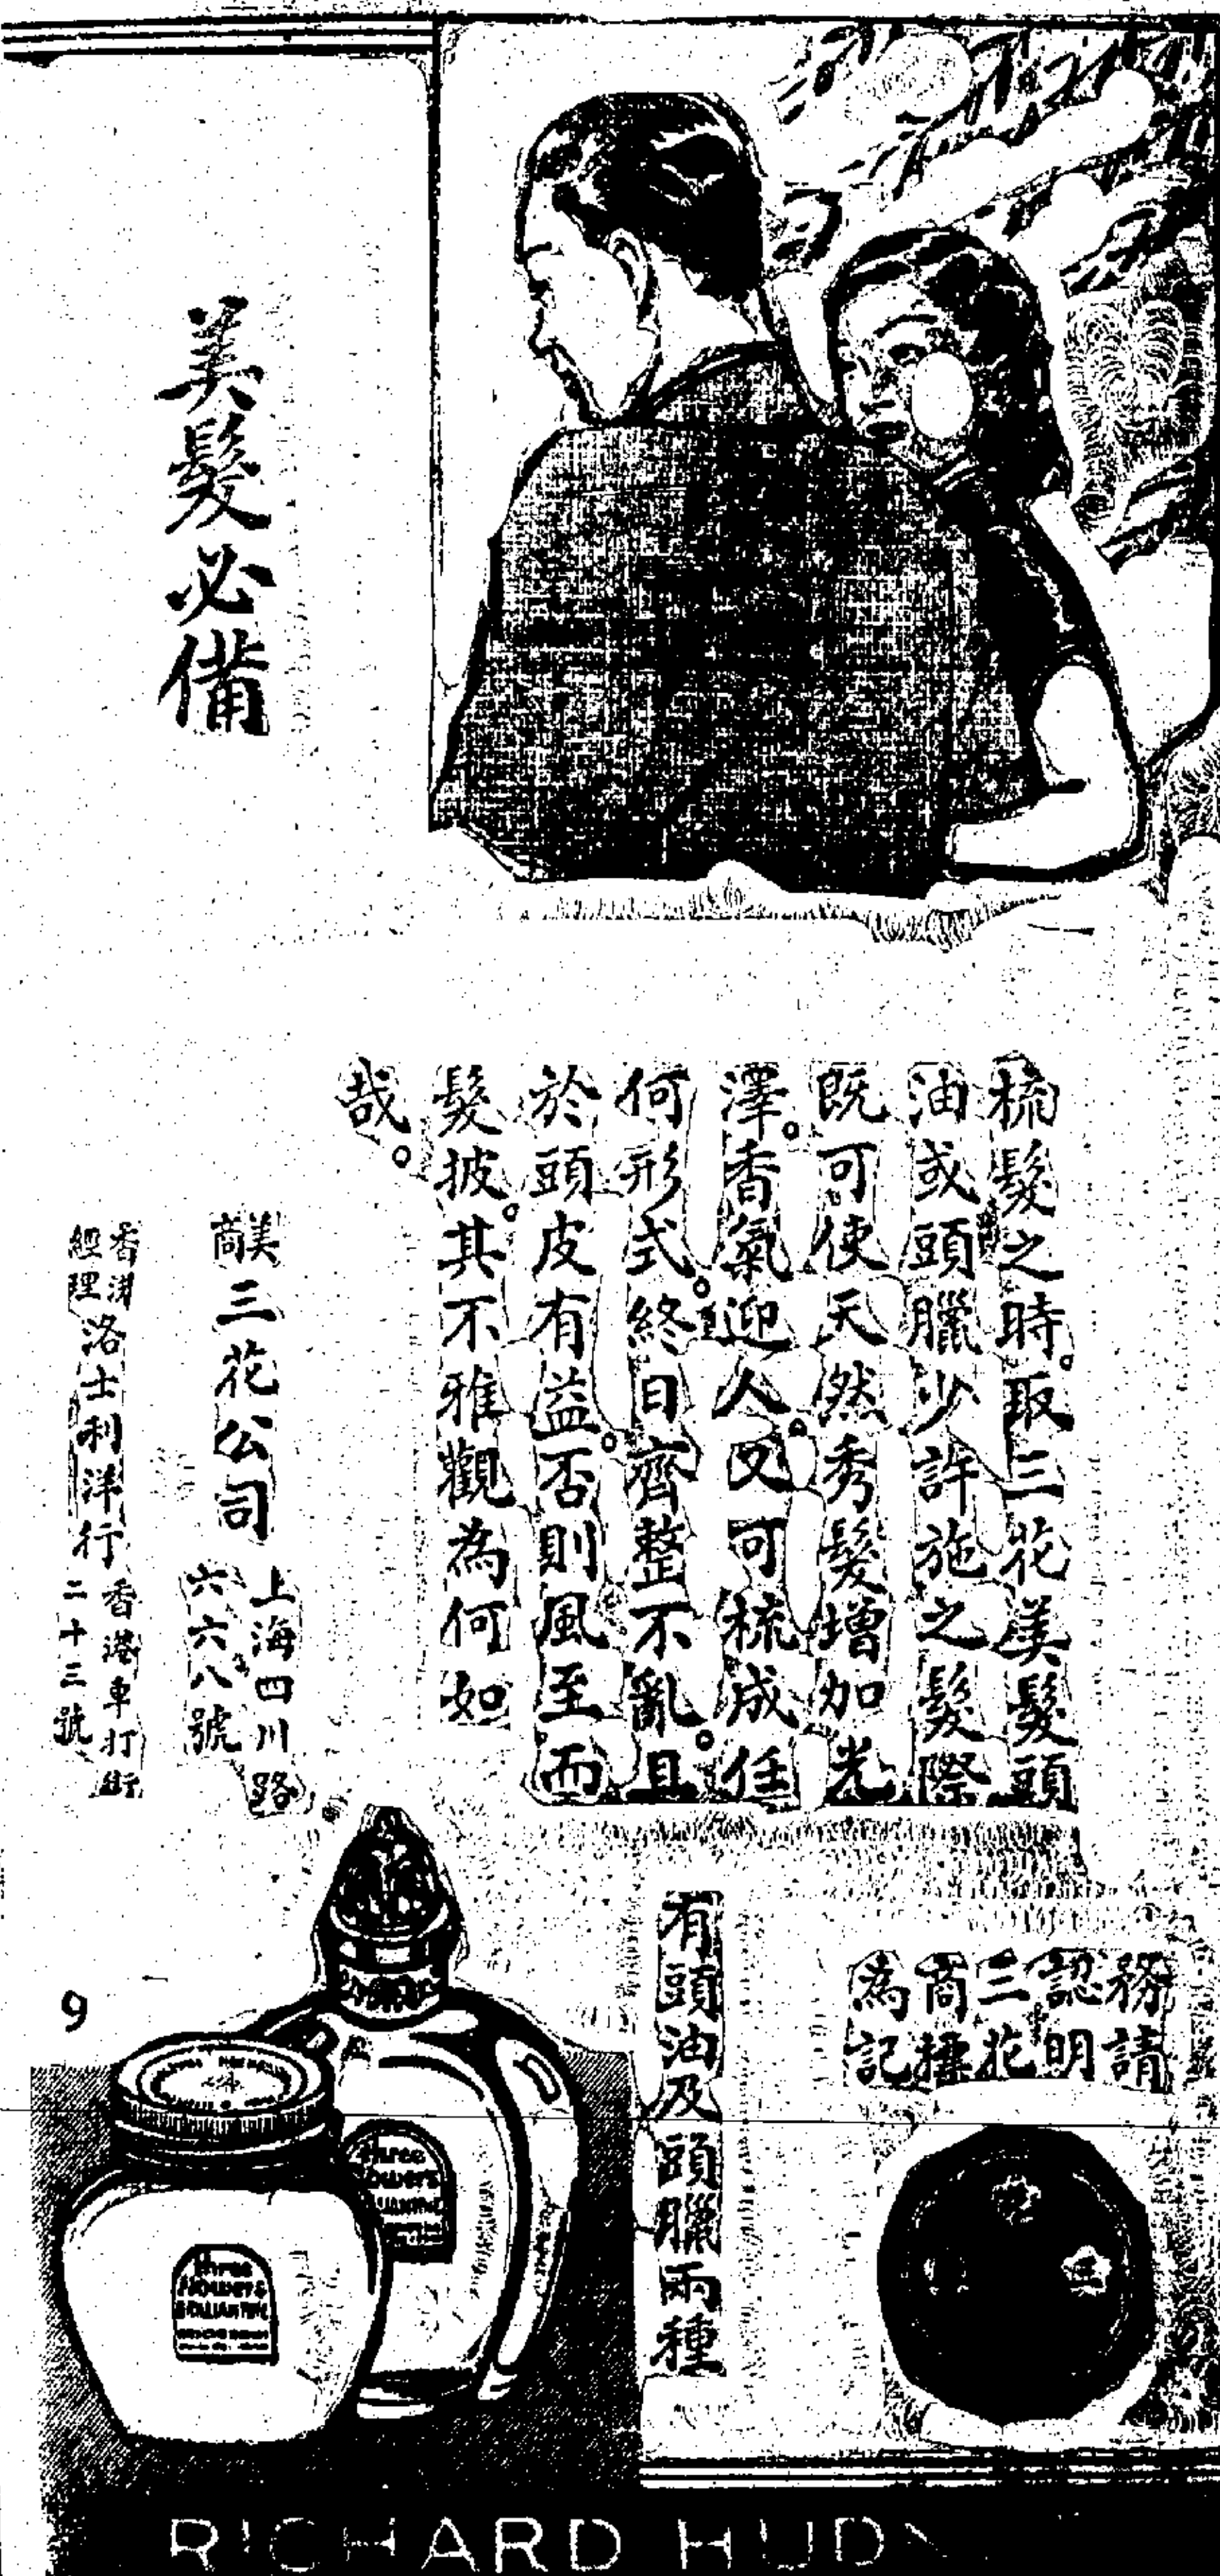 美髮必備
梳髮之時。取三花美髮頭
油或頭臘少許施之髮際
既可使天然秀髮增加光
澤。香氣迎人。又可梳成任
何形式。終日齊整不亂。且
於頭皮有益。否則風至而
髮披。其不雅觀為何如
哉。
美商三花公司
上海四川路
六六八號
香港經理洛士利洋行
香港車打街
二十三號
務請
認明
三花
商標
為記
有頭油及頭臘兩種
9
three
flowers
three
flowers
BRILLIANTINE
RICHARD HUD